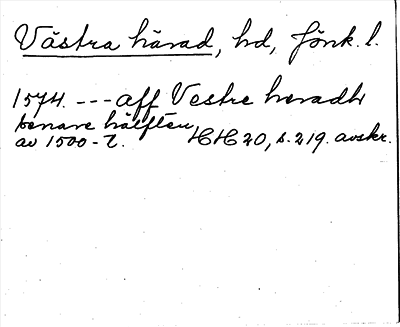 Västra härad, hd, Jönk. l.
1574. --- aff Vestre heradh
senare hälften
av 1500-t. HH 20, s. 219. avskr.